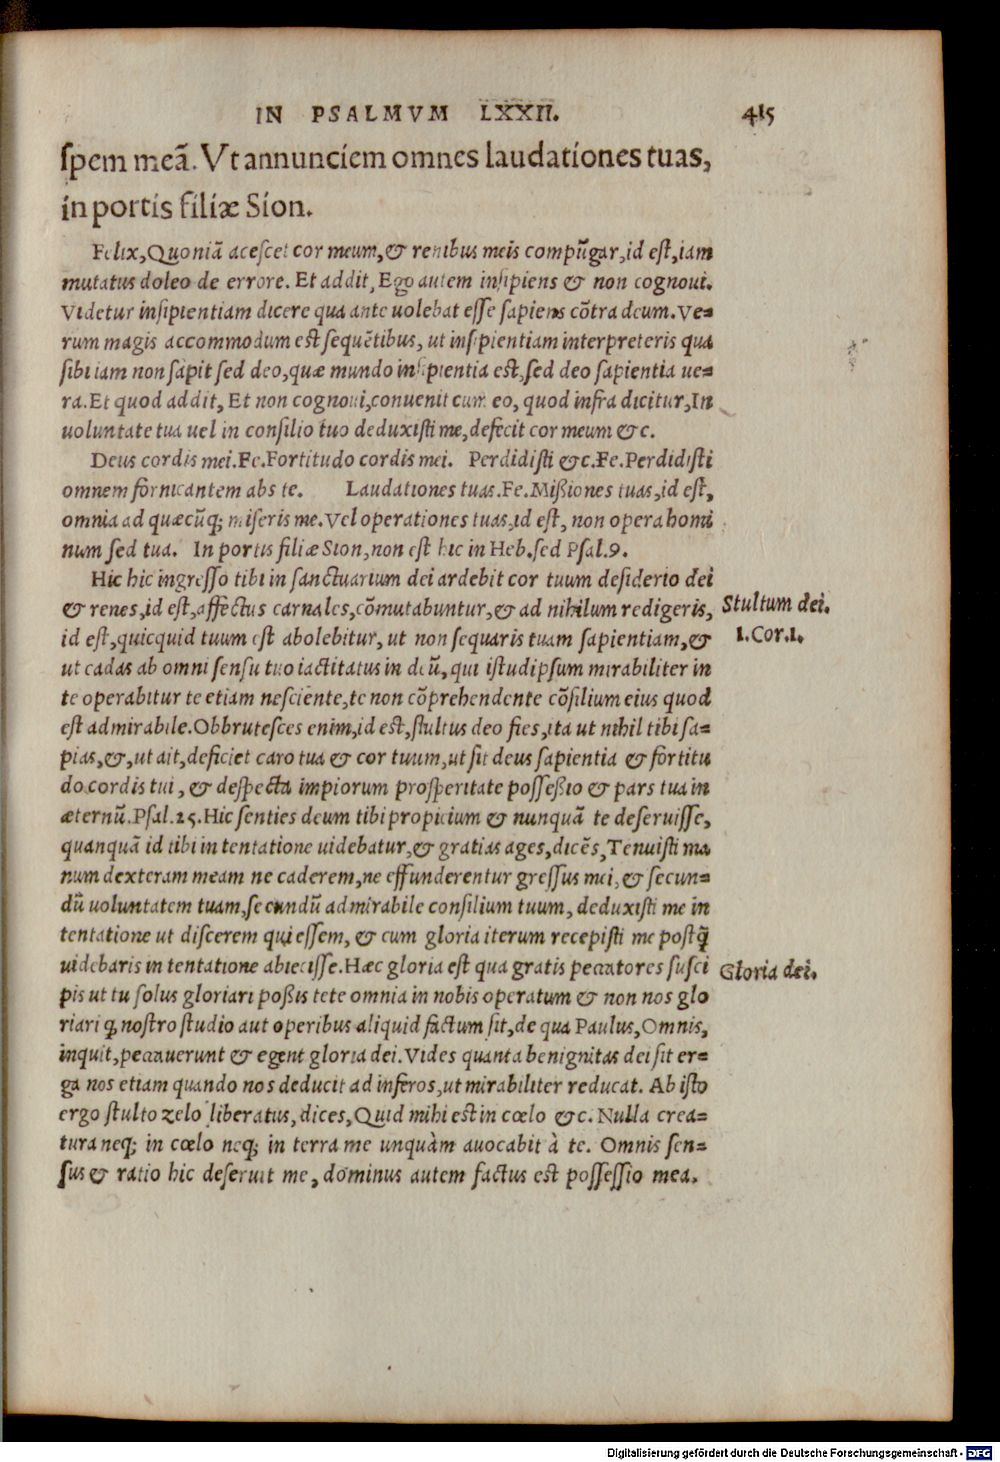 IN PSALMVM LXXII. 415
ſpem meã. Vt annunciem omnes laudationes tuas,
in portis filiæ Sion.
Felix, Quoniã aceſcet cor meum, & renibus meis compũgar, id eſt, iam
mutatus doleo de errore. Et addit, Ego autem inſipiens & non cognoui.
Videtur inſipientiam dicere qua ante uolebat eſſe ſapiens cõtra deum. Ve=
rum magis accommodum eſt ſequẽtibus, ut inſipientiam interpreteris qua
ſibi iam non ſapit ſed deo, quæ mundo inſipientia eſt, ſed deo ſapientia ue=
ra. Et quod addit, Et non cognoui, conuenit cum eo, quod infra dicitur, In
uoluntate tua uel in conſilio tuo deduxiſti me, defecit cor meum &c.
Deus cordis mei. Fe. Fortitudo cordis mei. Perdidiſti &c. Fe. Perdidiſti
omnem fornicantem abs te. Laudationes tuas. Fe. Mißiones tuas, id eſt,
omnia ad quæcũq; miſeris me. Vel operationes tuas, id eſt, non opera homi
num ſed tua. In portis filiæ Sion, non eſt hic in Heb. ſed Pſal. 9.
Hic hic ingreſſo tibi in ſanctuarium dei ardebit cor tuum deſiderio dei
& renes, id eſt, affectus carnales, cõmutabuntur, & ad nihilum redigeris,
Stultum dei.
id eſt, quicquid tuum eſt abolebitur, ut non ſequaris tuam ſapientiam, &
1. Cor. 1.
ut cadas ab omni ſenſu tuo iactitatus in deũ, qui iſtud ipſum mirabiliter in
te operabitur te etiam neſciente, te non cõprehendente cõſilium eius quod
eſt admirabile. Obbruteſces enim, id eſt, ſtultus deo fies, ita ut nihil tibi ſa=
pias, &, ut ait, deficiet caro tua & cor tuum, ut ſit deus ſapientia & fortitu
do cordis tui, & deſpecta impiorum proſperitate poſſeßio & pars tua in
æternũ. Pſal. 25. Hic ſenties deum tibi propicium & nunquã te deſeruiſſe,
quanquã id tibi in tentatione uidebatur, & gratias ages, dicẽs, Tenuiſti ma
num dexteram meam ne caderem, ne effunderentur greſſus mei, & ſecun=
dũ uoluntatem tuam, ſecundũ admirabile conſilium tuum, deduxiſti me in
tentatione ut diſcerem qui eſſem, & cum gloria iterum recepiſti me poſtq̃
uidebaris in tentatione abieciſſe. Hæc gloria eſt qua gratis peccatores ſuſci
Gloria dei.
pis ut tu ſolus gloriari poßis te te omnia in nobis operatum & non nos glo
riari q̃ noſtro ſtudio aut operibus aliquid factum ſit, de qua Paulus, Omnis,
inquit, peccauerunt & egent gloria dei. Vides quanta benignitas dei ſit er=
ga nos etiam quando nos deducit ad inferos, ut mirabiliter reducat. Ab iſto
ergo ſtulto zelo liberatus, dices, Quid mihi eſt in cœlo &c. Nulla crea=
tura neq; in cœlo neq; in terra me unquàm auocabit à te. Omnis ſen=
ſus & ratio hic deſeruit me, dominus autem factus eſt poſſeſſio mea.
Digitalisierung gefördert durch die Deutsche Forschungsgemeinschaft - DFG